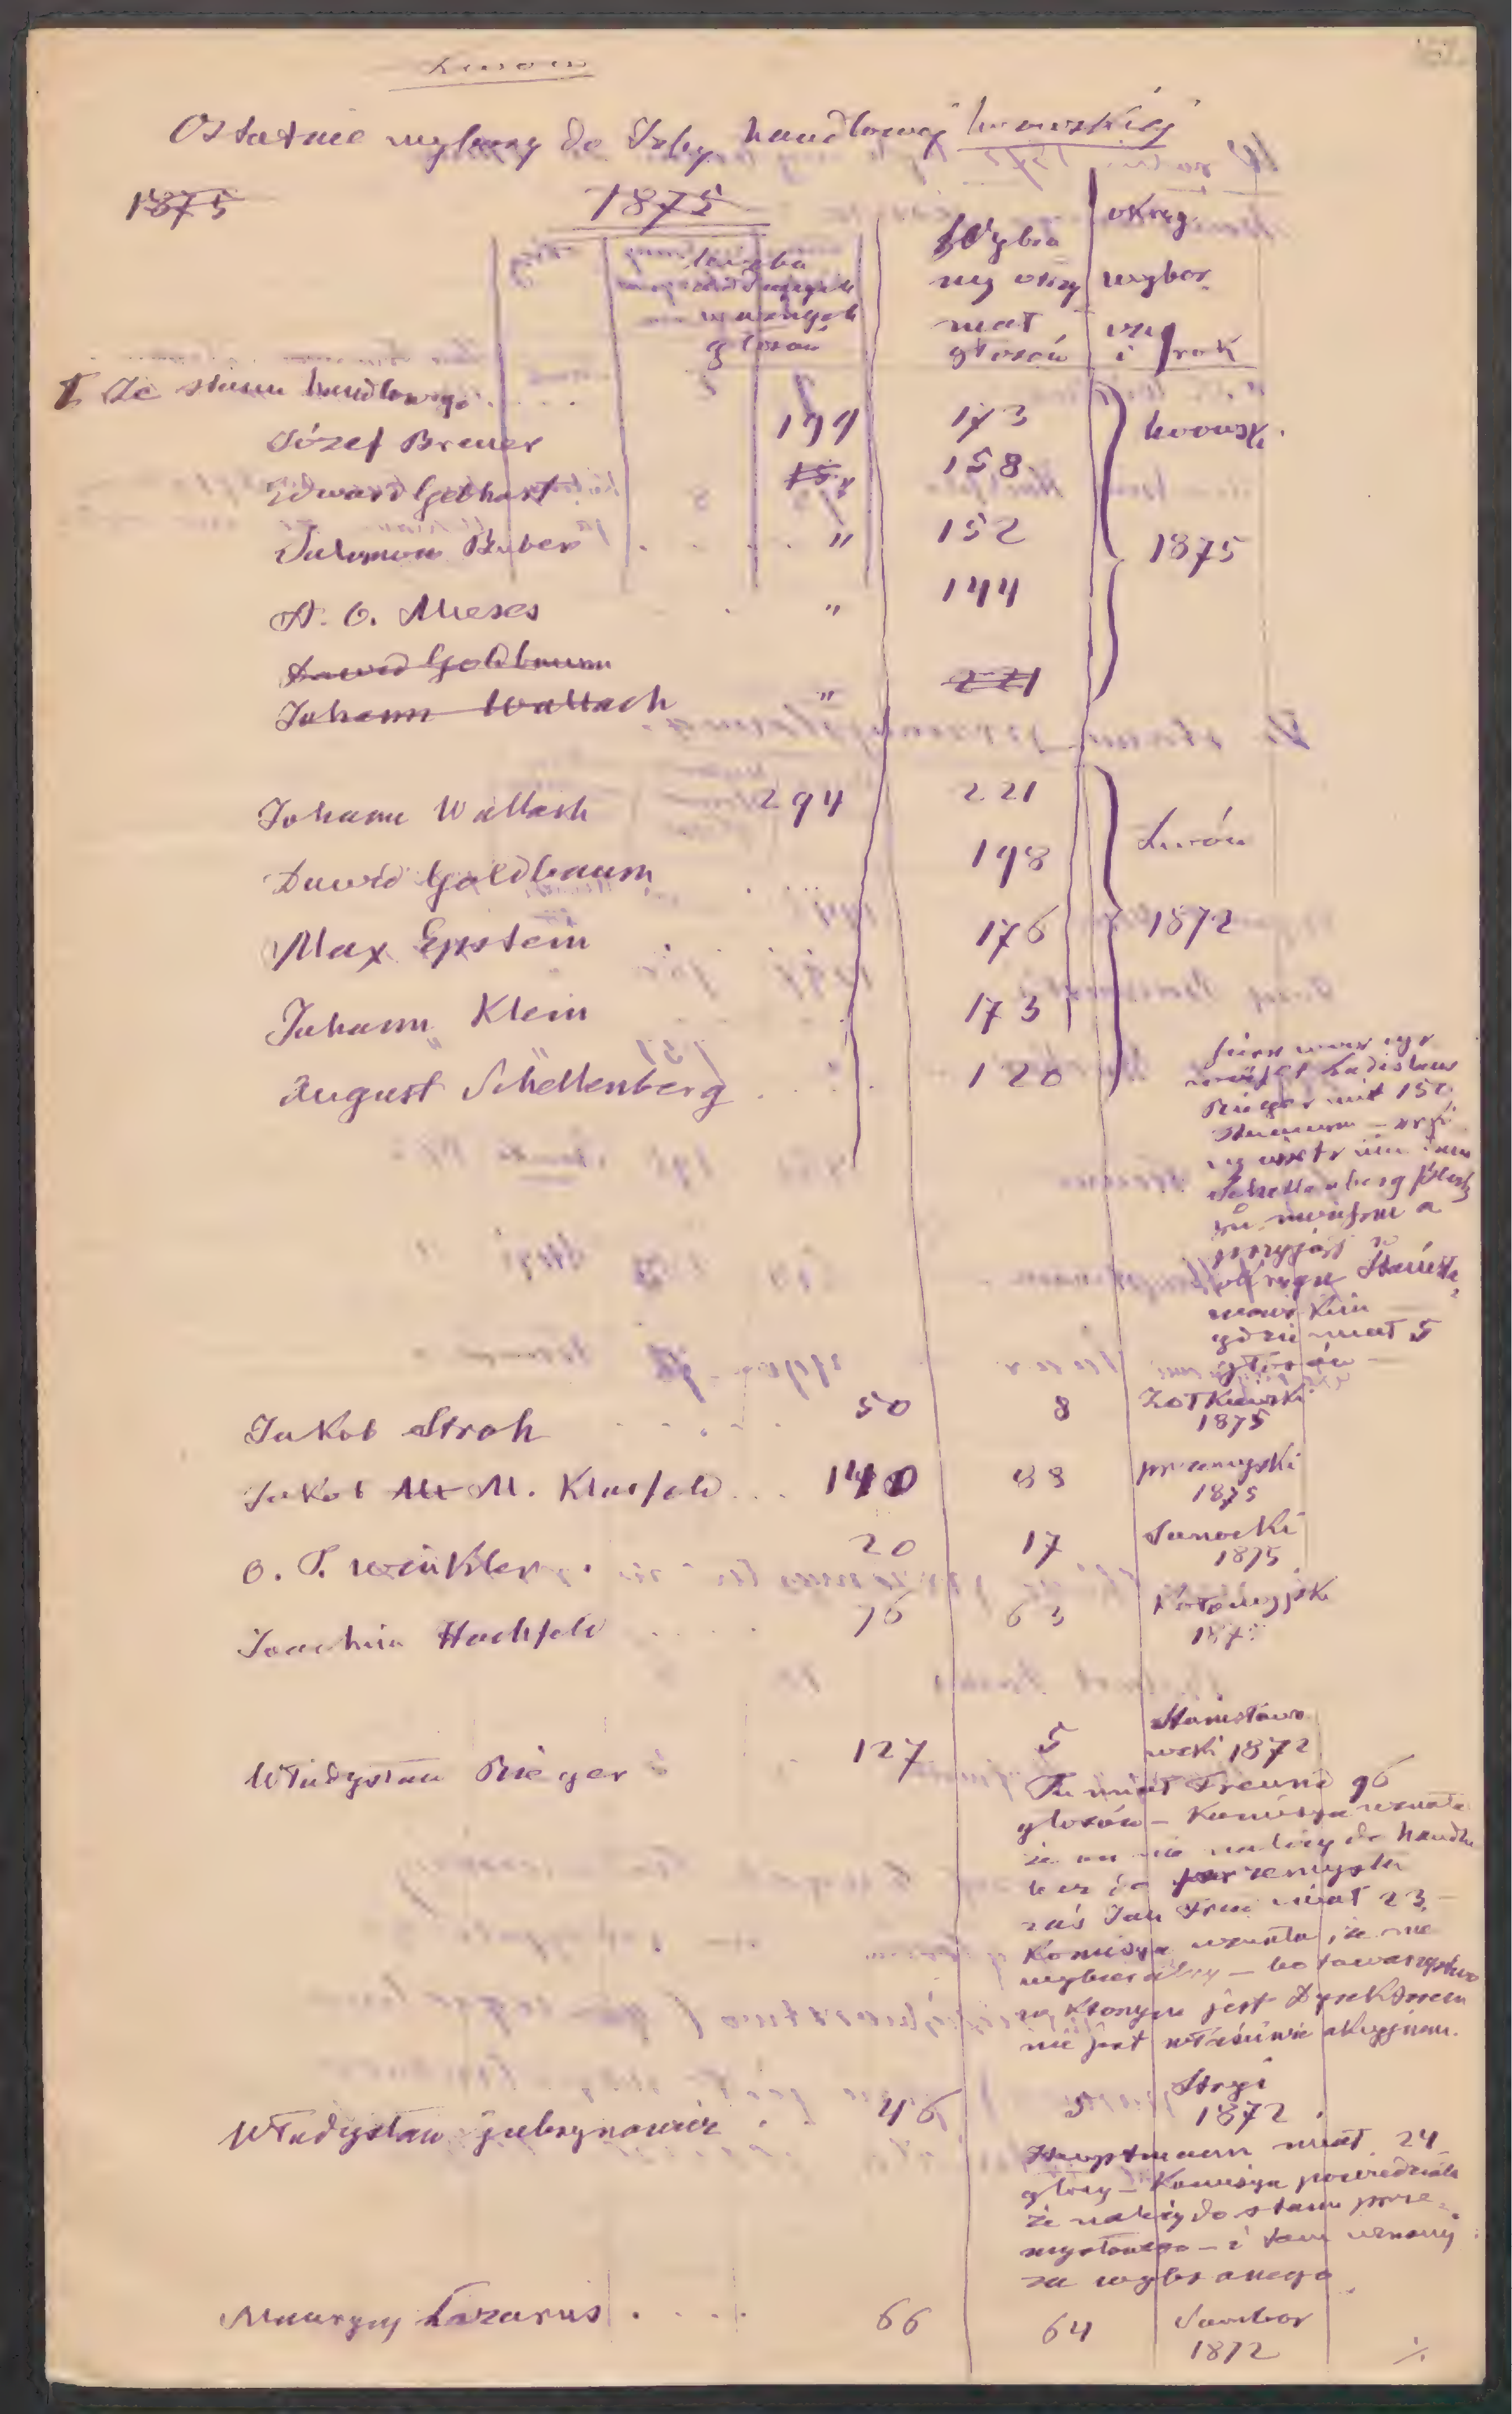 Lwów
Ostatnie wybory do Izby handlowej lwowskiej
1875 1875
liczba
ważnych
głosów
Wybra
ny otrzy
mał
głosów
okręg
wybor
czy
i rok
I Ze stanu handlowego
Józef Breuer 199 173 lwowsk.
Edward Gebhart 158
Salomon Buber " 152 1875
A. O. Mieses " 144
Dawid Goldbaum
Johann Wallach " 221
Johann Wallach 294 221
Dawid Goldbaum 198 Lwów
Max Epstein 176 1872
Johann Klein 173
August Schellenberg 120
Ladislaus
Rieger mit 150
Stimmen
Schellenberg
przyjąć w
okręgu Stanisła
wowskim
gdzie miał 5
głosów
Jakob Stroh 50 8 Żołkiewski
1875
Jakob M. M. Klarfeld 140 88 przemyski
1875
O. T. Winkler 20 17 Sanocki
1875
Joachim Hochfeld 76 63 Kołomyjski
187
Władysław Rieger 127 5 Stanisławo
wski 1872
Tu miał Freund 96
głosów – Komisya uznała
że on nie należy do handlu
lecz do przemysłu
zaś Jan miał 23 –
Komisya uznała, że nie
wybieralny – bo towarzystwo
w którym jest Dyrektorem
nie jest właściwie akcyjnem.
Władysław Gubrynowicz 46 5 Stryj
1872
Hauptmann miał 24
głosy – Komisya powiedziała
że należy do stanu prze-
mysłowego – i tam uznany
za wybranego
Maurycy Lazarus 66 64 Sambor
1872
./.